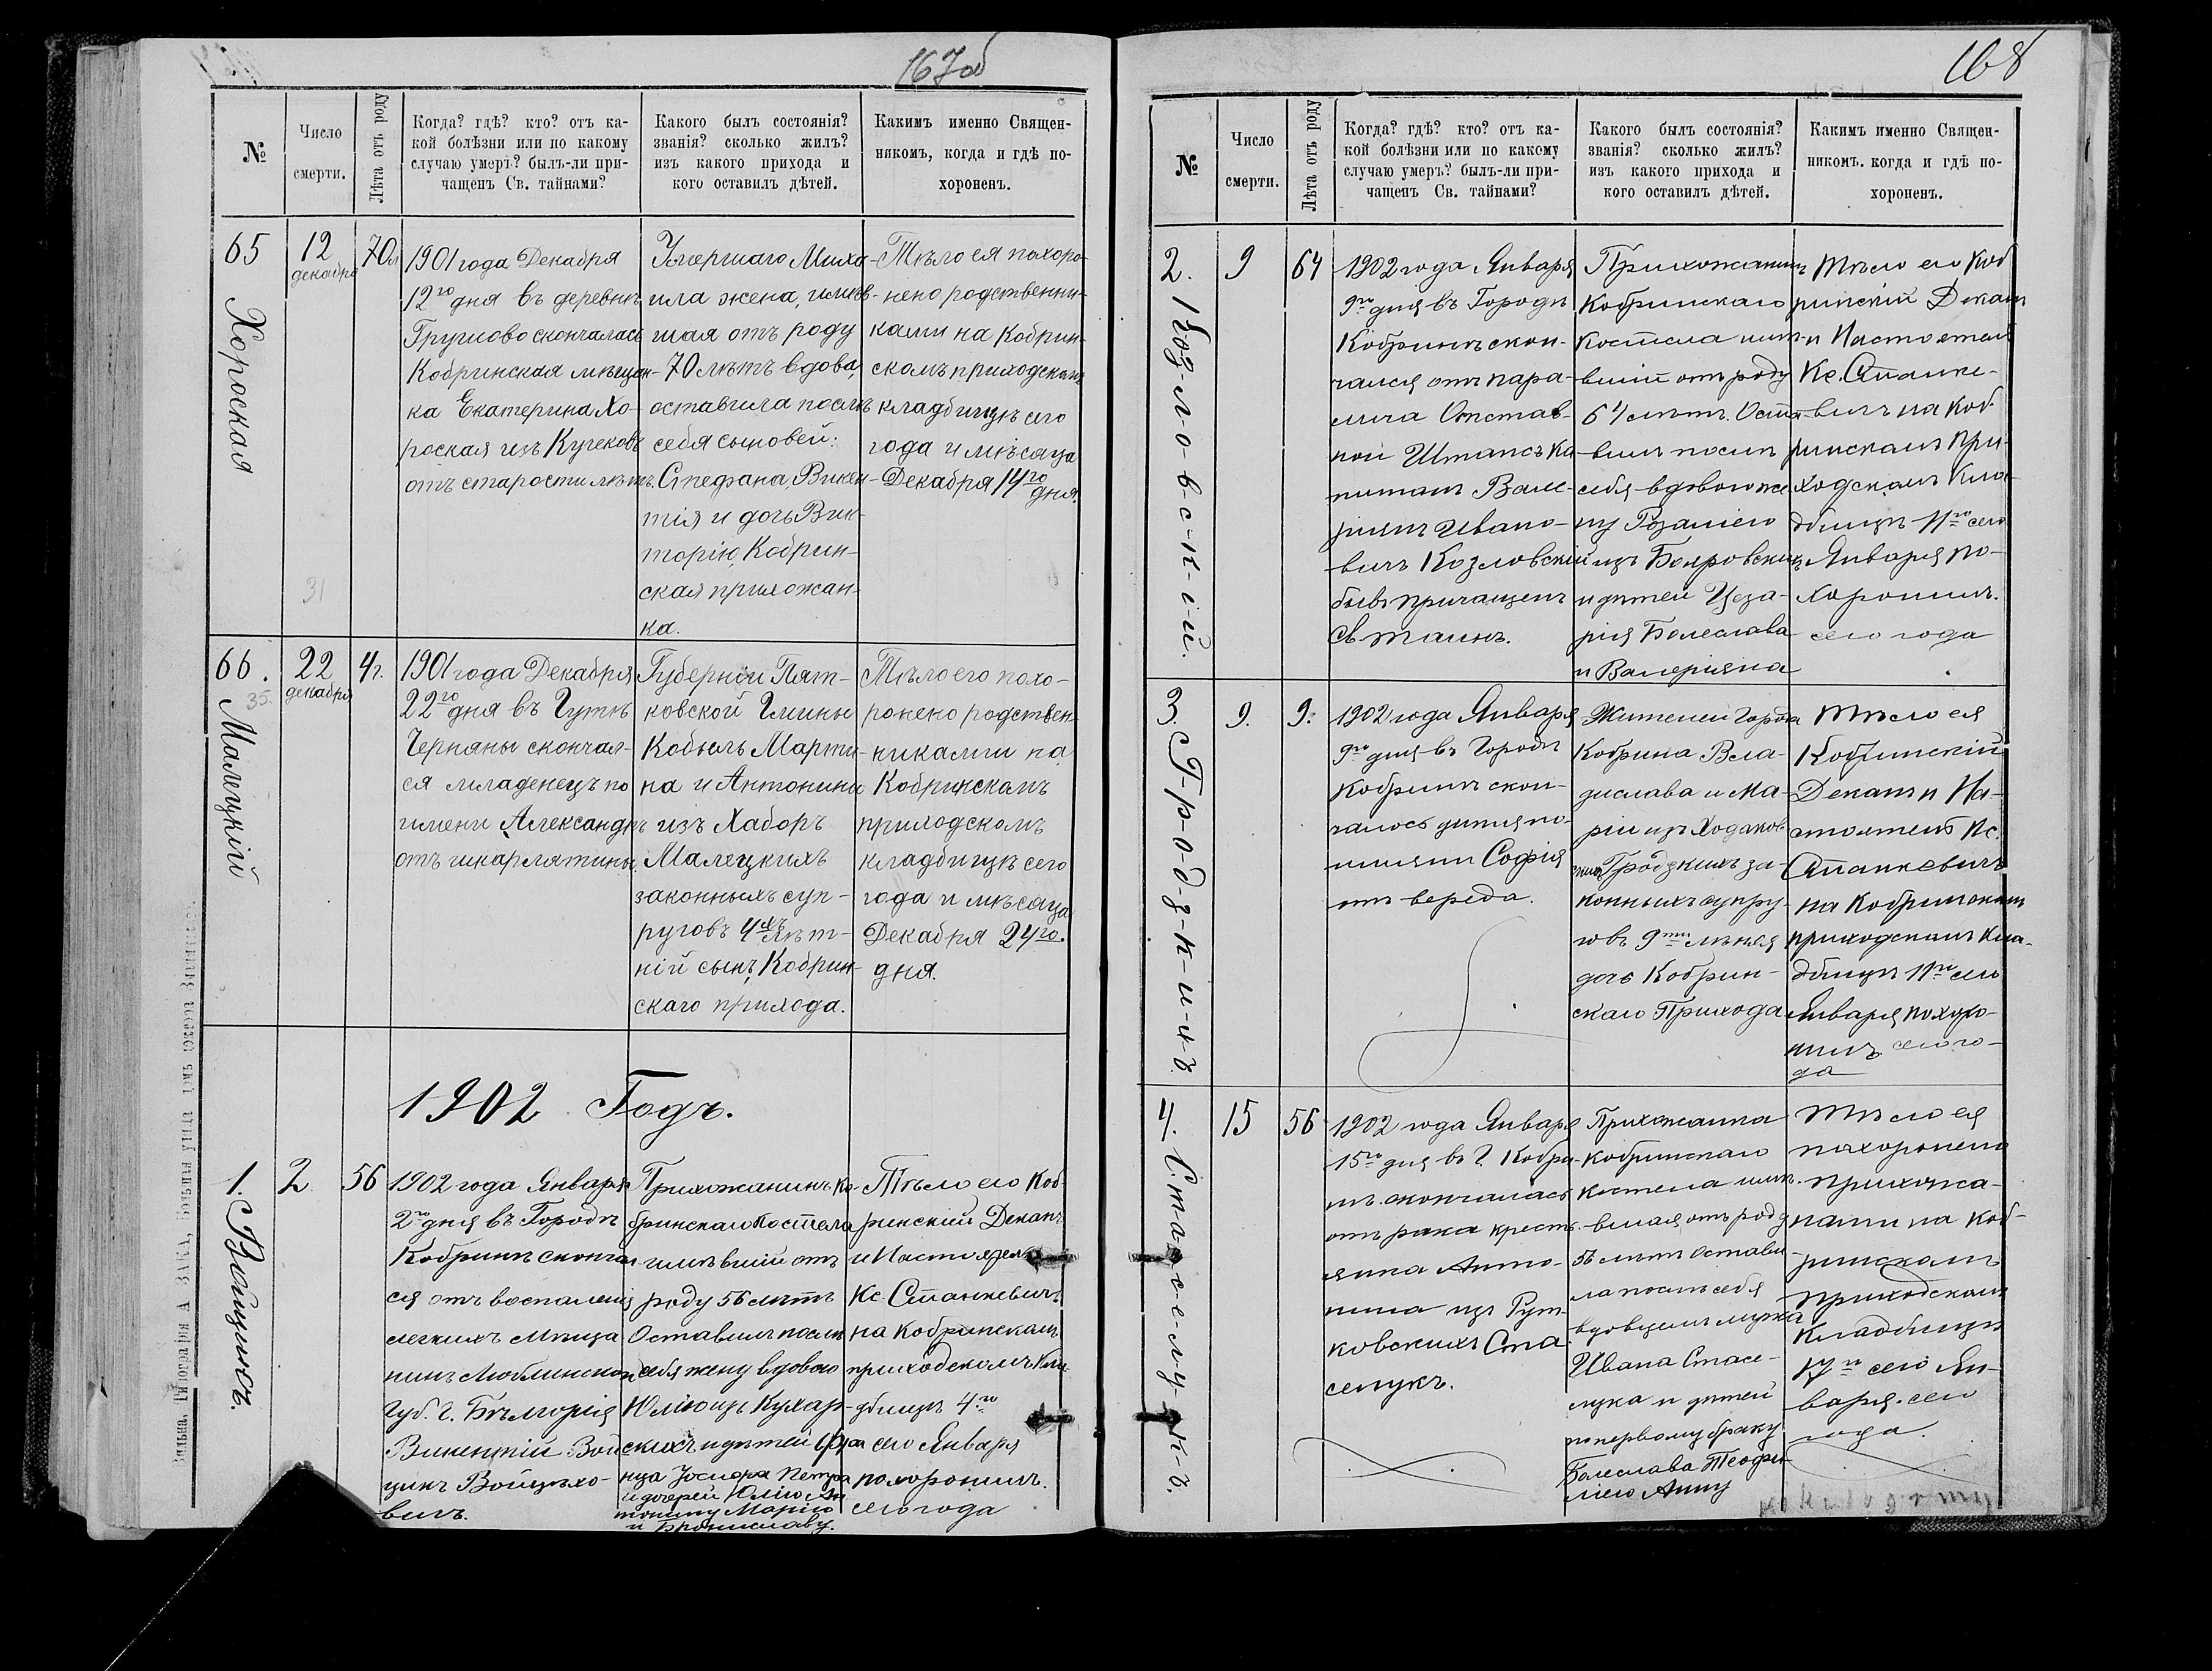 167об
№
Число
смерти.
Лѣта отъ роду
Когда? гдѣ? кто? отъ ка-
кой болѣзни или по какому
случаю умеръ? былъ-ли при-
чащенъ Св. тайнами?
Какого былъ состоянія?
званія? сколько жилъ?
изъ какого прихода и
кого оставилъ дѣтей.
Какимъ именно Священ-
никомъ, когда и гдѣ по-
хороненъ.
65
Хороская
12
декабря
70л
1901 года Декабря
12го дня въ деревнѣ
Грушово скончалась
Кобринская мѣщан-
ка Екатерина Хо-
роская изъ Кучековъ
отъ старости лѣтъ.
Умершаго Миха-
ила жена, имѣв-
шая отъ роду
70 лѣтъ вдова,
оставила послѣ
себя сыновей:
Стефана, Викен-
тія и дочь Вик-
торію, Кобрин-
ская прихожан-
ка.
Тѣло ея похоро-
нено родственни-
ками на Кобрин-
скомъ приходскомъ
кладбищѣ сего
года и мѣсяца
Декабря 14го
дня.
31
66.
35.
Малецкій
22
декабря
4г.
1901 года Декабря
22го дня въ Гутѣ
Черняны скончал-
ся младенецъ по
имени Александръ
отъ шкарлятины.
Губерніи
ковской Гмины
Кобыль Марти-
на и Антонины
изъ Хаборъ
Малецкихъ
законныхъ суп-
руговъ 4хъ лѣт-
ній сынъ, Кобрин-
скаго прихода.
Тѣло его похо-
ронено родствен-
никами на
Кобринскомъ
приходскомъ
кладбищѣ сего
года и мѣсяца
Декабря 24го.
дня.
1902 Годъ.
1. Войцикъ.
2
56
1902 года Января
2го дня въ Городѣ
Кобринѣ сконча
ся отъ воспаленія
легкихъ мѣща
нинъ Люблинской
Губ. г. Бѣлгорія
Викентій Вой
цикъ Войцѣхо-
вичъ.
Прихожанинъ Ко-
бринскаго Костела
имѣвшій отъ
роду 56 лѣтъ
Оставилъ послѣ
себя жену вдовою
Юлію изъ Кухар-
скихъ и дѣтей Фра
нца Іосифа Петра
и дочерей Юлію Ан
тонину Марію
и Брониславу.
Тѣло его Коб-
ринскій Деканъ
и Настоятель
Кс. Станкевичъ
на Кобринскомъ
приходскомъ Кла-
дбищѣ 4го
сего Января
похоронилъ.
сего года
168
№
Число
смерти.
Лѣта отъ роду
Когда? гдѣ? кто? отъ ка-
кой болѣзни или по какому
случаю умеръ? былъ-ли при-
чащенъ Св. тайнами?
Какого былъ состоянія?
званія? сколько жилъ?
изъ какого прихода и
кого оставилъ дѣтей.
Какимъ именно Священ-
никомъ. когда и гдѣ по-
хороненъ.
2. Козловскій.
9
64
1902 года Января
9го дня въ Городѣ
Кобринѣ скон-
чался отъ пара-
лича Отстав-
ной Штапсъ Ка-
питанъ Вале-
ріянъ Ивано-
вичъ Козловскій
бывъ причащенъ
Св. таинъ.
Прихожанинъ
Кобринскаго
Костела имѣ-
вшій отъ роду
64 лѣтъ. Оста-
вилъ послѣ
себя вдовою же-
ну Розалію
изъ Бояровскихъ
и дѣтей Цеза-
рія Болеслава
и Валеріяна
Тѣло его Коб
ринскій Деканъ
и Настоятель
Кс. Станке-
вичъ на Коб-
ринскомъ при-
ходскомъ Кла-
дбищѣ 11го сего
Января по-
хоронилъ.
сего года
3. Гродзкихъ.
9.
9.
1902 года Января
9го дня въ Городѣ
Кобринѣ скон-
чалось дитя по
имени Софія
отъ вереда.
Жителей Города
Кобрина Вла-
дислава и Ма-
ріи изъ Ходаков-
скихъ Гродзкихъ за-
конныхъ супру-
говъ 9ти лѣтняя
дочь Кобрин-
скаго Прихода
Тѣло ея
Кобринскій
Деканъ и На-
стоятель Кс.
Станкевичъ
на Кобринскомъ
приходскомъ Кла-
дбищѣ 11го сего
Января похоро-
нилъ сего го-
да
4. Стаселукъ.
15
56
1902 года Января
15го дня въ Г. Кобри-
нѣ. скончалась
отъ рака кресть-
янка Анто-
нина изъ Рут-
ковскихъ Ста-
селукъ.
Прихожанка
Кобринскаго
Костела имѣ-
вшая отъ роду
56 лѣтъ Остави-
ла послѣ себя
вдовцемъ мужа
Ивана Стасе-
лука и дѣтей
по первому браку
Болеслава Теофи-
лію Анну
Тѣло ея
похоронено
прихожа-
нами на Коб-
ринскомъ
приходскомъ
Кладбищѣ
17го сего Ян-
варя. сего
года.